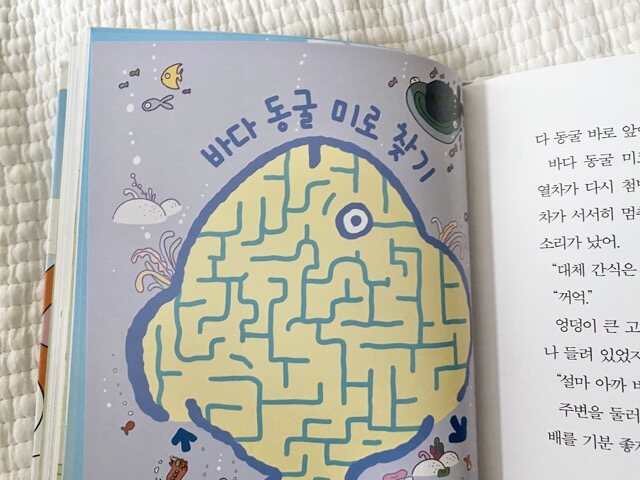 바다 동굴 미로 찾기
다 동굴 바로 앞
바다 동굴 미
열차가 다시 첨
차가 서서히 멈
소리가 났어.
“대체 간식은
“꺼억.”
엉덩이 큰 고
나 들려 있었지
“설마 아까
주변을 둘러
배를 기분 좋